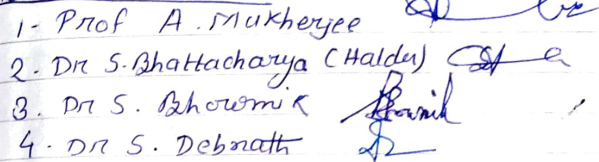 1- Prof A. Mukherjee
2. Dr S. Bhattacharya (Halder)
3. Dr S. Bhowmik Bhowmik
4. Dr S. Debnath